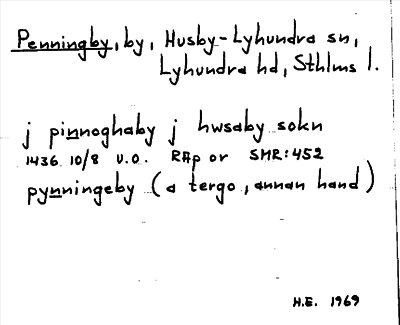 Penningby, by, Husby-Lyhundra sn,
Lyhundra hd, Sthlms l.
j pinnoghaby j hwsaby sokn
1436 10/8 U.O. RAp or SMR:452
pynningeby (a tergo, annan hand)
H.E. 1969